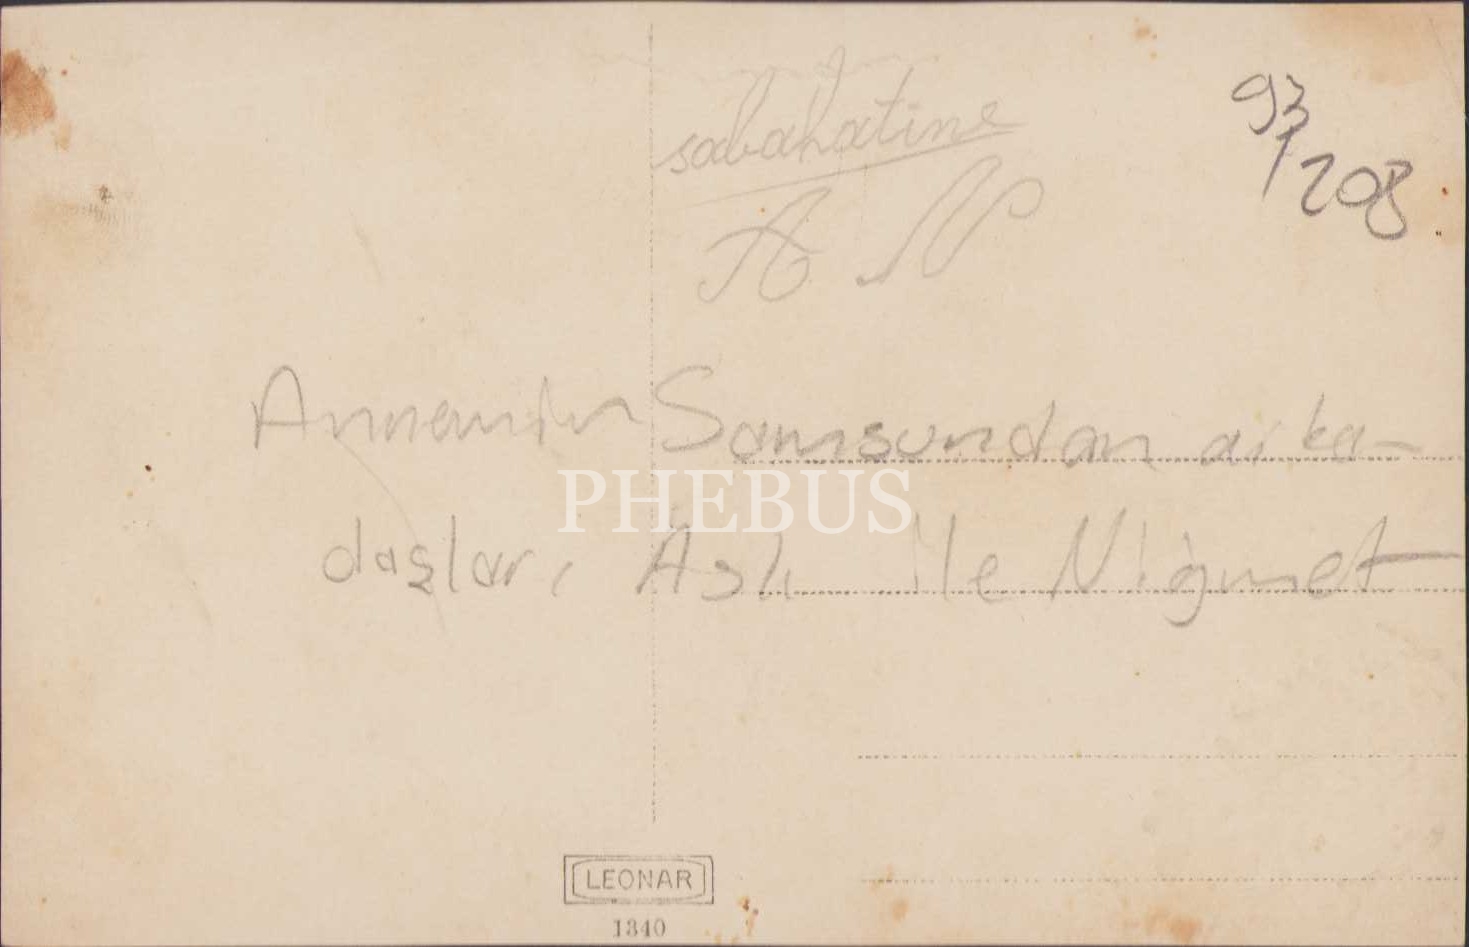 sabahatine
93/208
A N
Annemin Samsundan arka-
daşları Aslı ile Niğmet
PHEBUS
LEONAR
1340